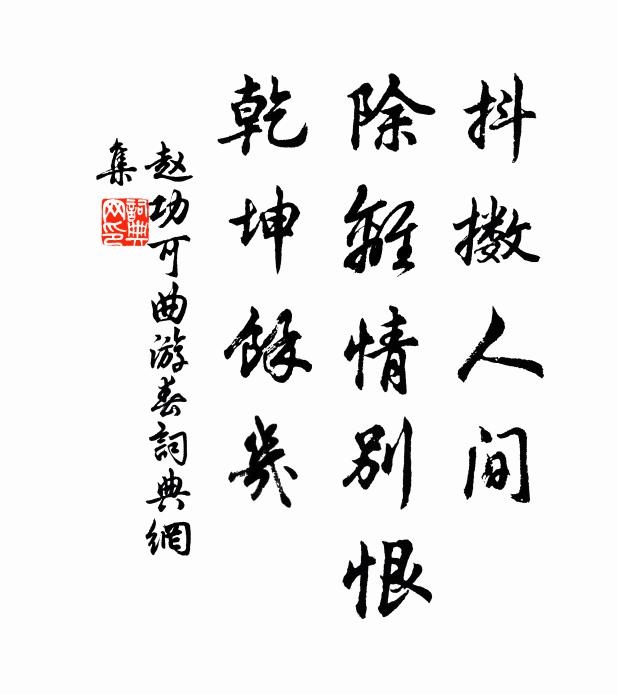 抖擻人間
除離情別恨
乾坤餘幾
赵功可曲游春詞典網
集
詞典
网印